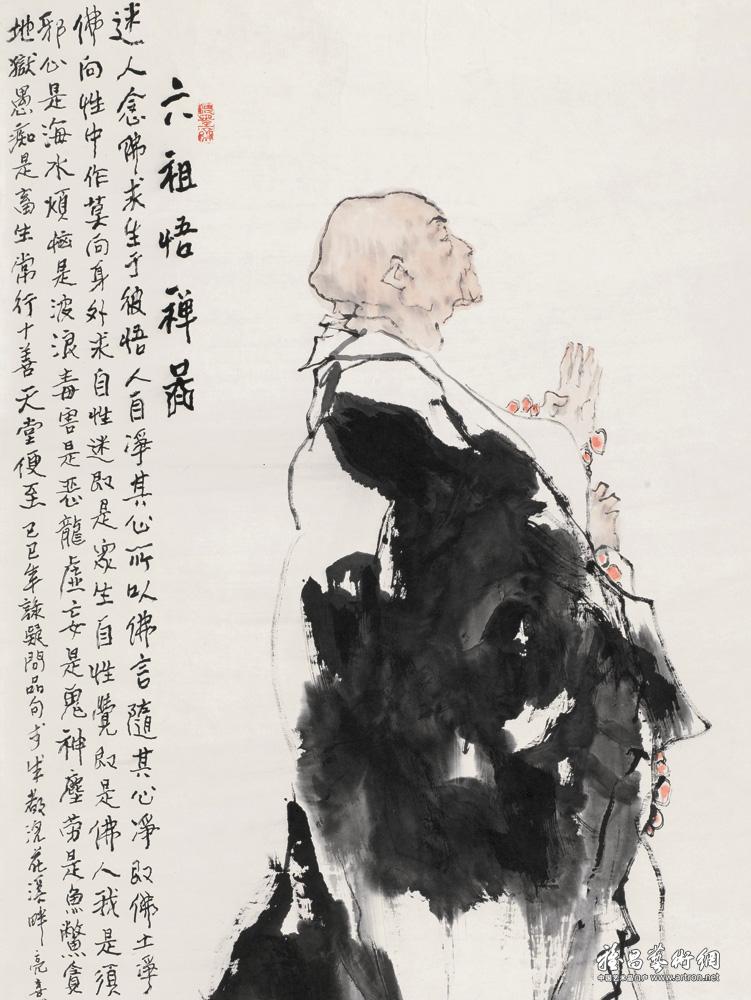 六祖悟禪啚
迷人念佛求生于彼悟人自淨其心所以佛言隨其心淨即佛土淨
佛向性中作莫向身外求自性迷即是眾生自性覺即是佛人我是須
邪心是海水煩惱是波浪毒害是惡龍虛妄是鬼神塵勞是魚鱉貪
地獄愚痴是畜生常行十善天堂便至 己巳年錄疑問品句于成都浣花溪畔亮
雅昌藝術網
www.artron.net